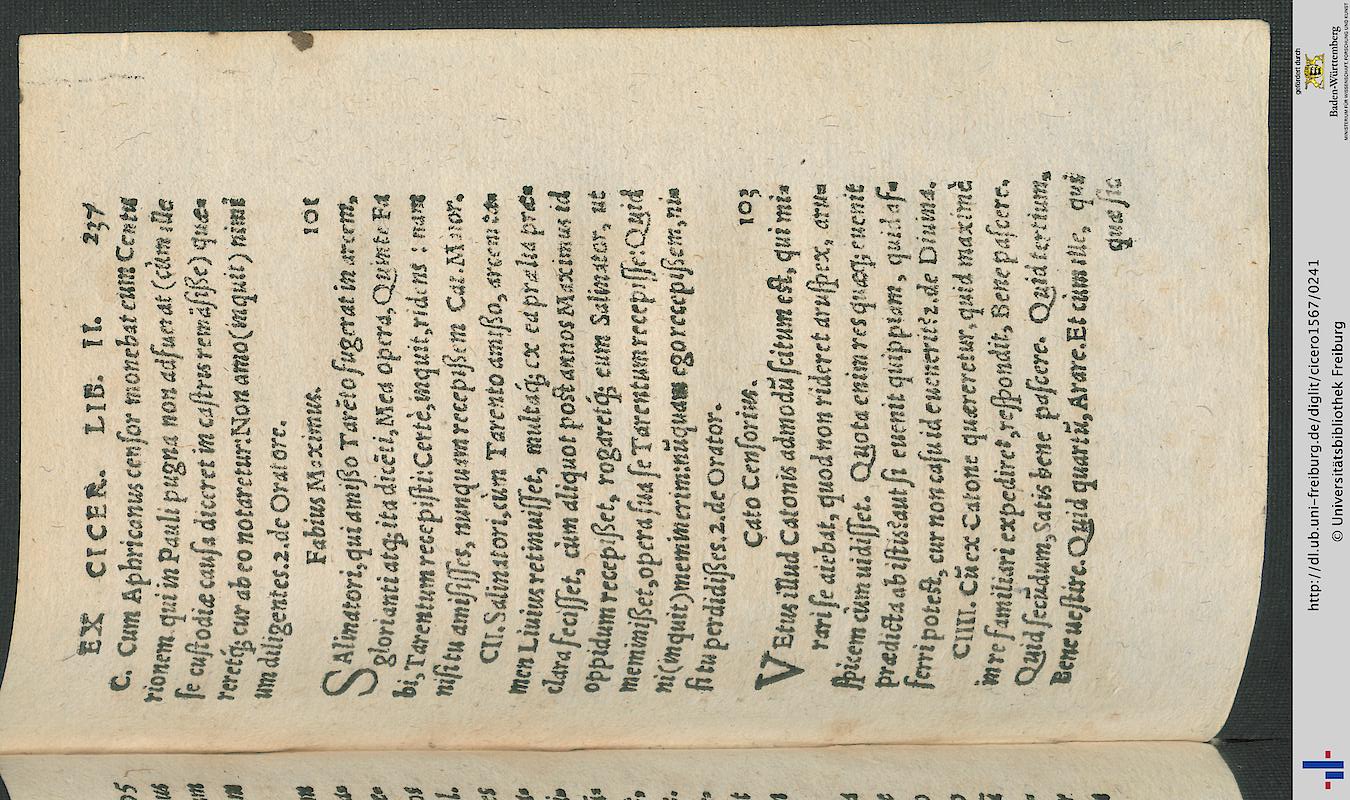 EX CICER. LIB. II. 237
C. Cum Aphricanus censor monebat eum Centu
rionem qui in Pauli pugna non adfuerat (cùm ille
se custodiæ causa diceret in castris remāsiße) quæ-
reretq́; cur ab eo notaretur: Non amo (inquit) nimi
um diligentes. 2. de Oratore.
Fabius Maximus. 101
SAlinatori, qui amißo Tarēto fugerat in arcem,
glorianti atq; ita dicēti, Mea opera, Quinte Fa
bi, Tarentum recepisti: Certè, inquit, ridens: nam
nisi tu amisisses, nunquam recepißem Cat. Maior.
CII. Salinatori, cùm Tarento amißo, arcem ta-
men Liuius retinuisset, multaq́; ex ea prælia præ-
clara fecisset, cùm aliquot post annos Maximus id
oppidum recepißet, rogaretq́; eum Salinator, ut
meminißet, opera sua se Tarentum recepisse: Quid
ni (inquit) meminerim: nūquam ego recepißem, ni-
si tu perdidißes. 2. de Orator.
Cato Censorius. 103
VEtus illud Catonis admodū scitum est, qui mi-
rari se aiebat, quod non rideret aruspex, aru-
spicem cùm uidisset. Quota enim res quæq; euenit
prædicta ab istis? aut si euenit quippiam, quid af-
ferri potest, cur non casu id euenerit? 2. de Diuina.
CIIII. Cū ex Catone quæreretur, quid maximè
in re familiari expediret, respondit, Bene pascere.
Quid secūdum, Satis bene pascere. Quid tertium,
Bene uestire. Quid quartū, Arare. Et cum ille, qui
quæsie
http://dl.ub.uni-freiburg.de/diglit/cicero1567/0241
© Universitätsbibliothek Freiburg
gefördert durch
Baden-Württemberg
MINISTERIUM FÜR WISSENSCHAFT, FORSCHUNG UND KUNST